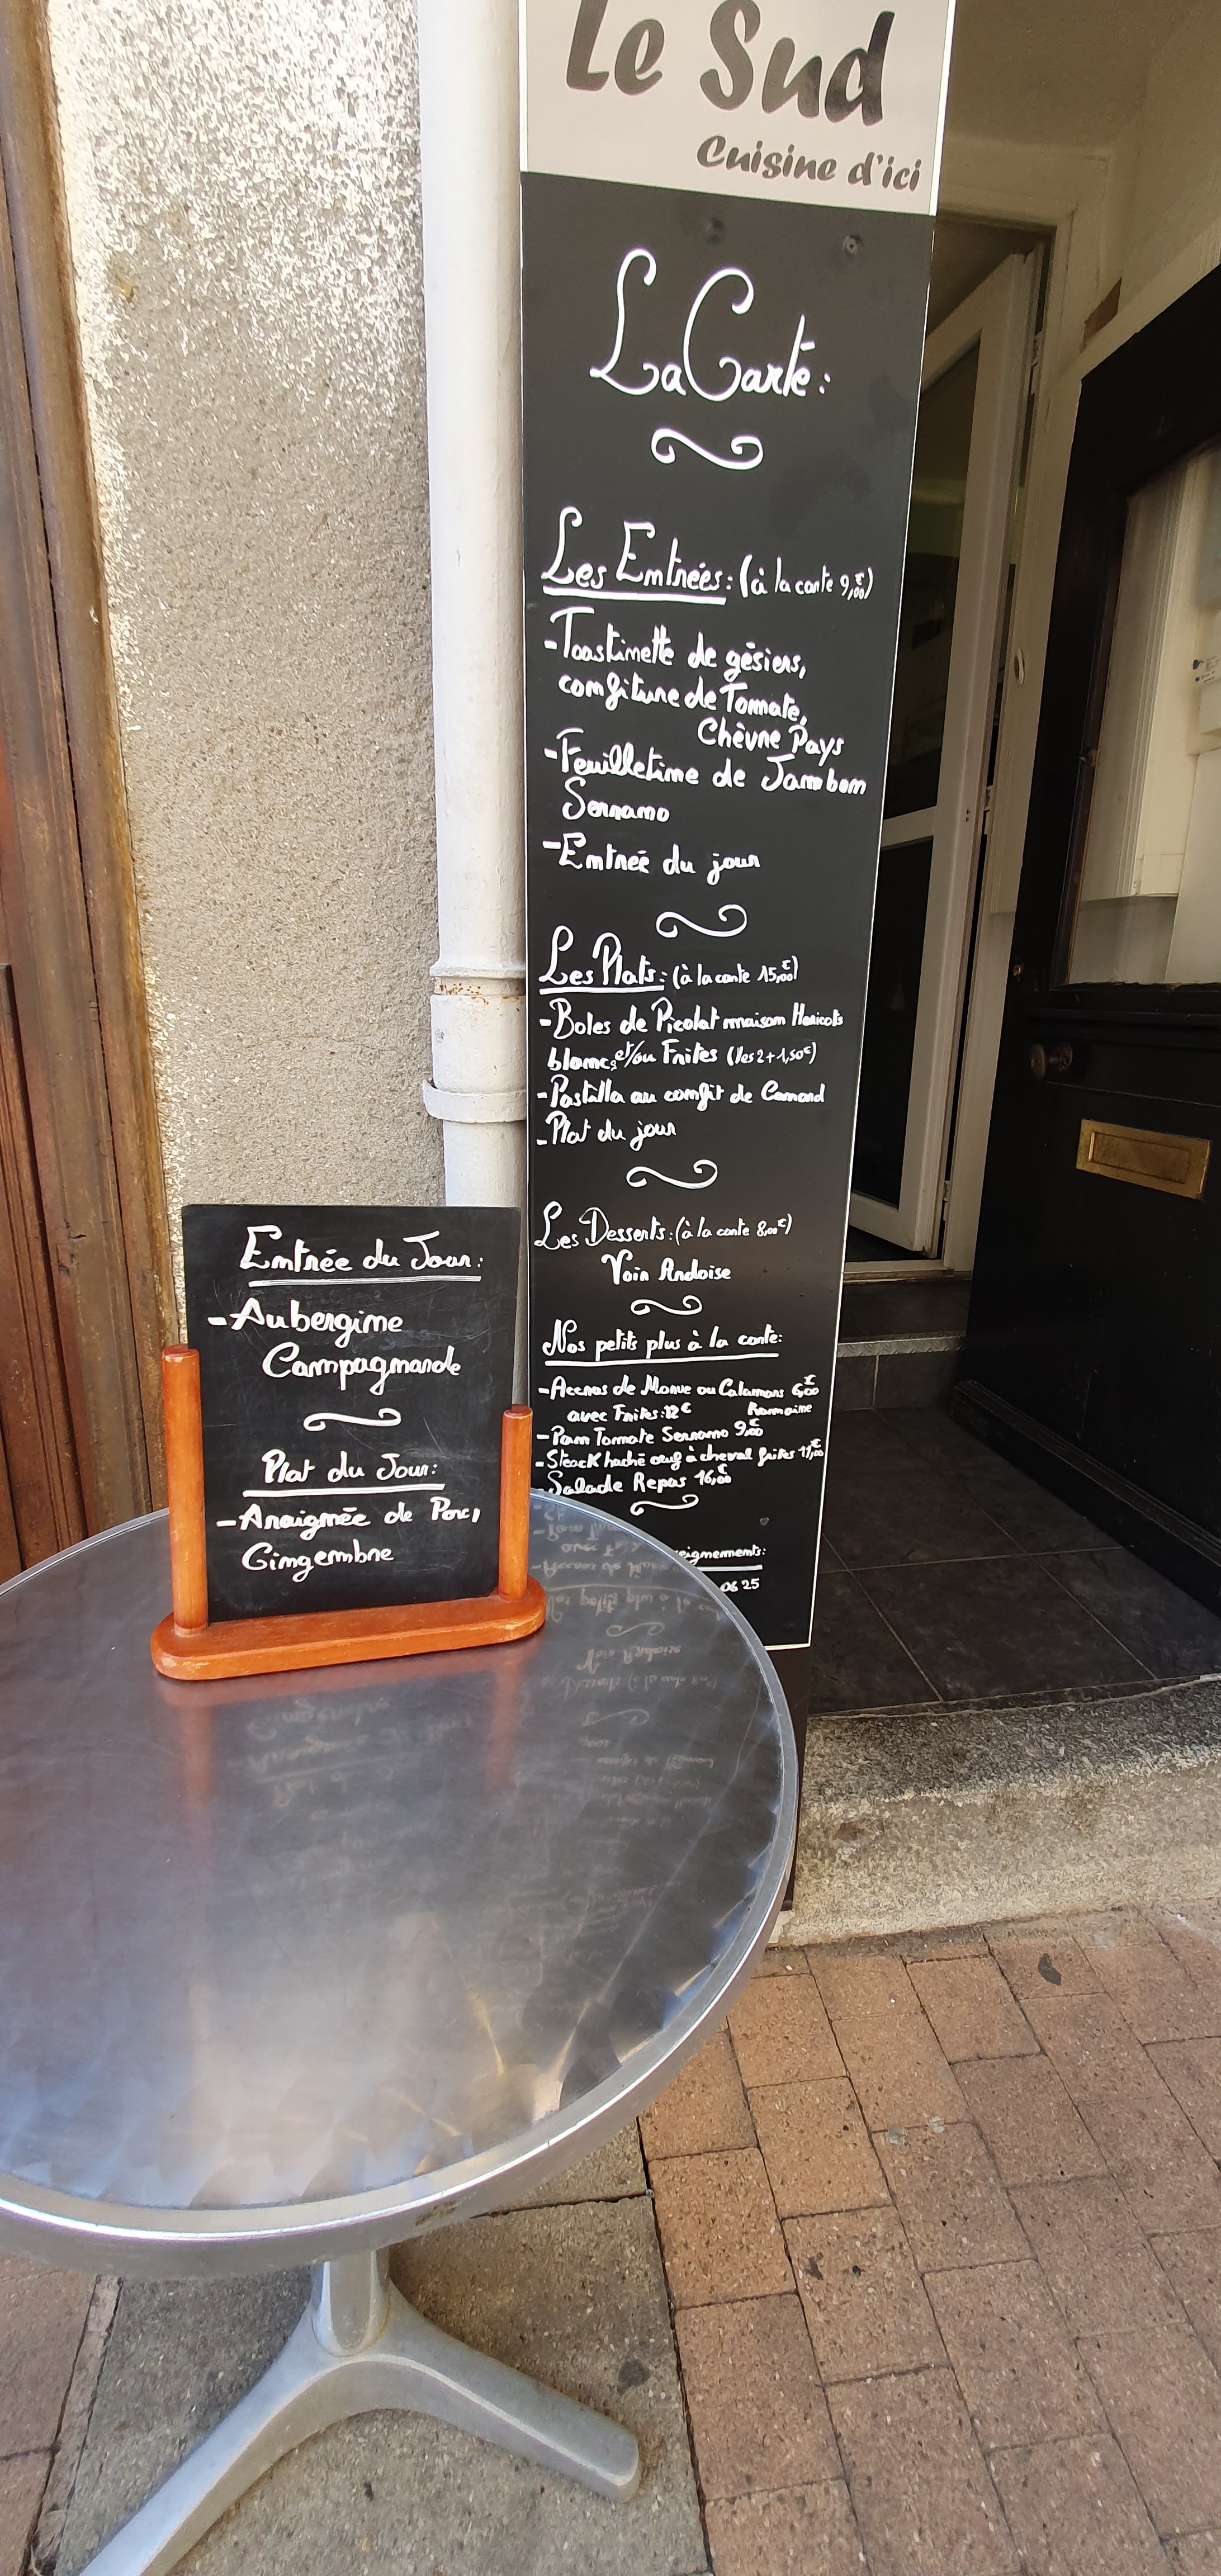 Le Sud
Cuisine d'ici
La Carte:
Les Entrées: (à la carte 9,00€)
-Toastinette de gésiers,
confiture de Tomate,
Chèvre Pays
-Feuilletine de Jambon
Serrano
-Entrée du jour
Les Plats: (à la carte 15,00€)
-Boles de Picolat maison Haricots
blancs et/ou Frites (les 2 + 1,50€)
-Pastilla au confit de Canard
-Plat du jour
Les Desserts: (à la carte 8,00€)
Voir Ardoise
Nos petits plus à la carte:
-Accras de Morue ou Calamars 6,00€
avec Frites: 12€ Romaine
-Pan Tomate Serrano 9,00€
-Steack haché œuf à cheval frites
-Salade Repas 16,00€
eignements:
06 25
Entrée du Jour:
-Aubergine
Campagnarde
Plat du Jour:
-Araignée de Porc,
Gingembre